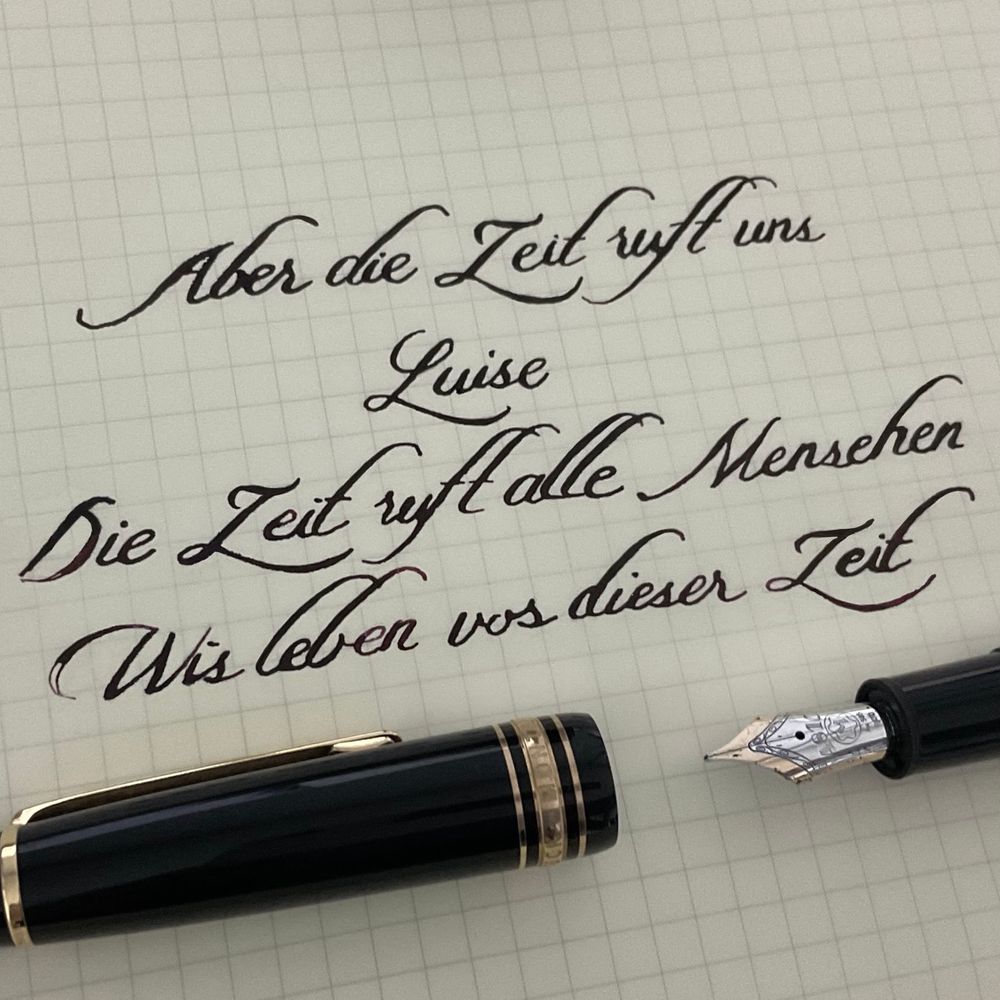 Aber die Zeit ruft uns
Luise
Die Zeit ruft alle Menschen
Wir leben vor dieser Zeit